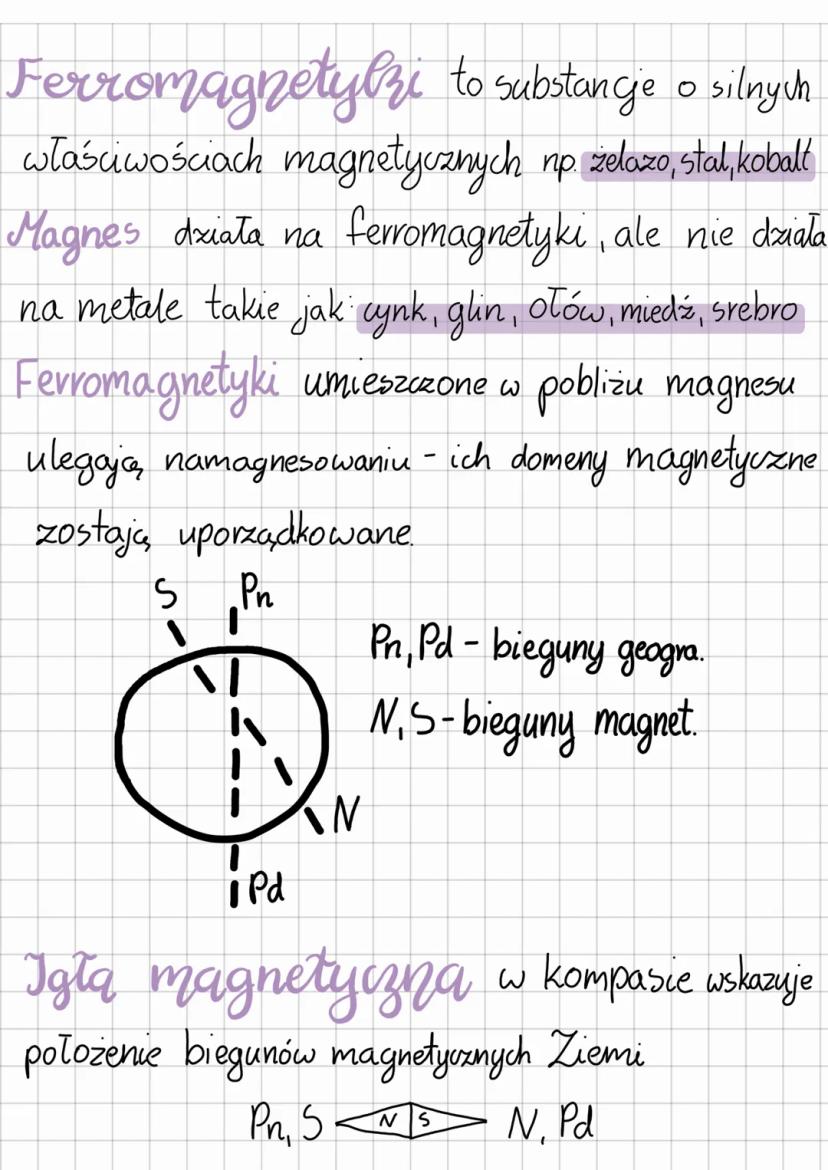 Ferromagnetyki to substancje o silnych
właściwościach magnetycznych np. żelazo, stal, kobalt
Magnes działa na ferromagnetyki, ale nie działa
na metale takie jak: cynk, glin, ołów, miedź, srebro
Ferromagnetyki umieszczone w pobliżu magnesu
ulegają namagnesowaniu - ich domeny magnetyczne
zostają uporządkowane.
S Pn
Pn, Pd - bieguny geogra.
N, S - bieguny magnet.
N
Pd
Igłą magnetyczną w kompasie wskazuje
położenie biegunów magnetycznych Ziemi
Pn, S N S N, Pd